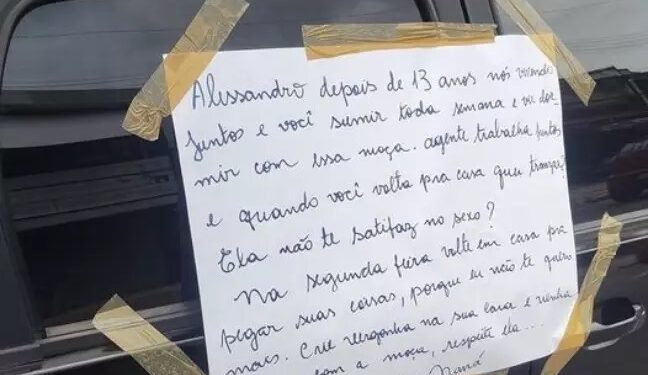 Alessandro depois de 13 anos nós vivendo
juntos e você sumir toda semana e vir dor-
mir com essa moça. agente trabalha juntos
e quando você volta pra casa quer transar?
Ela não te satifaz no sexo?
Na segunda feira volte em casa pra
pegar suas coisas, porque eu não te quero
mais. Crie vergonha na sua cara e venha
com a moça, respeite ela...
Naná